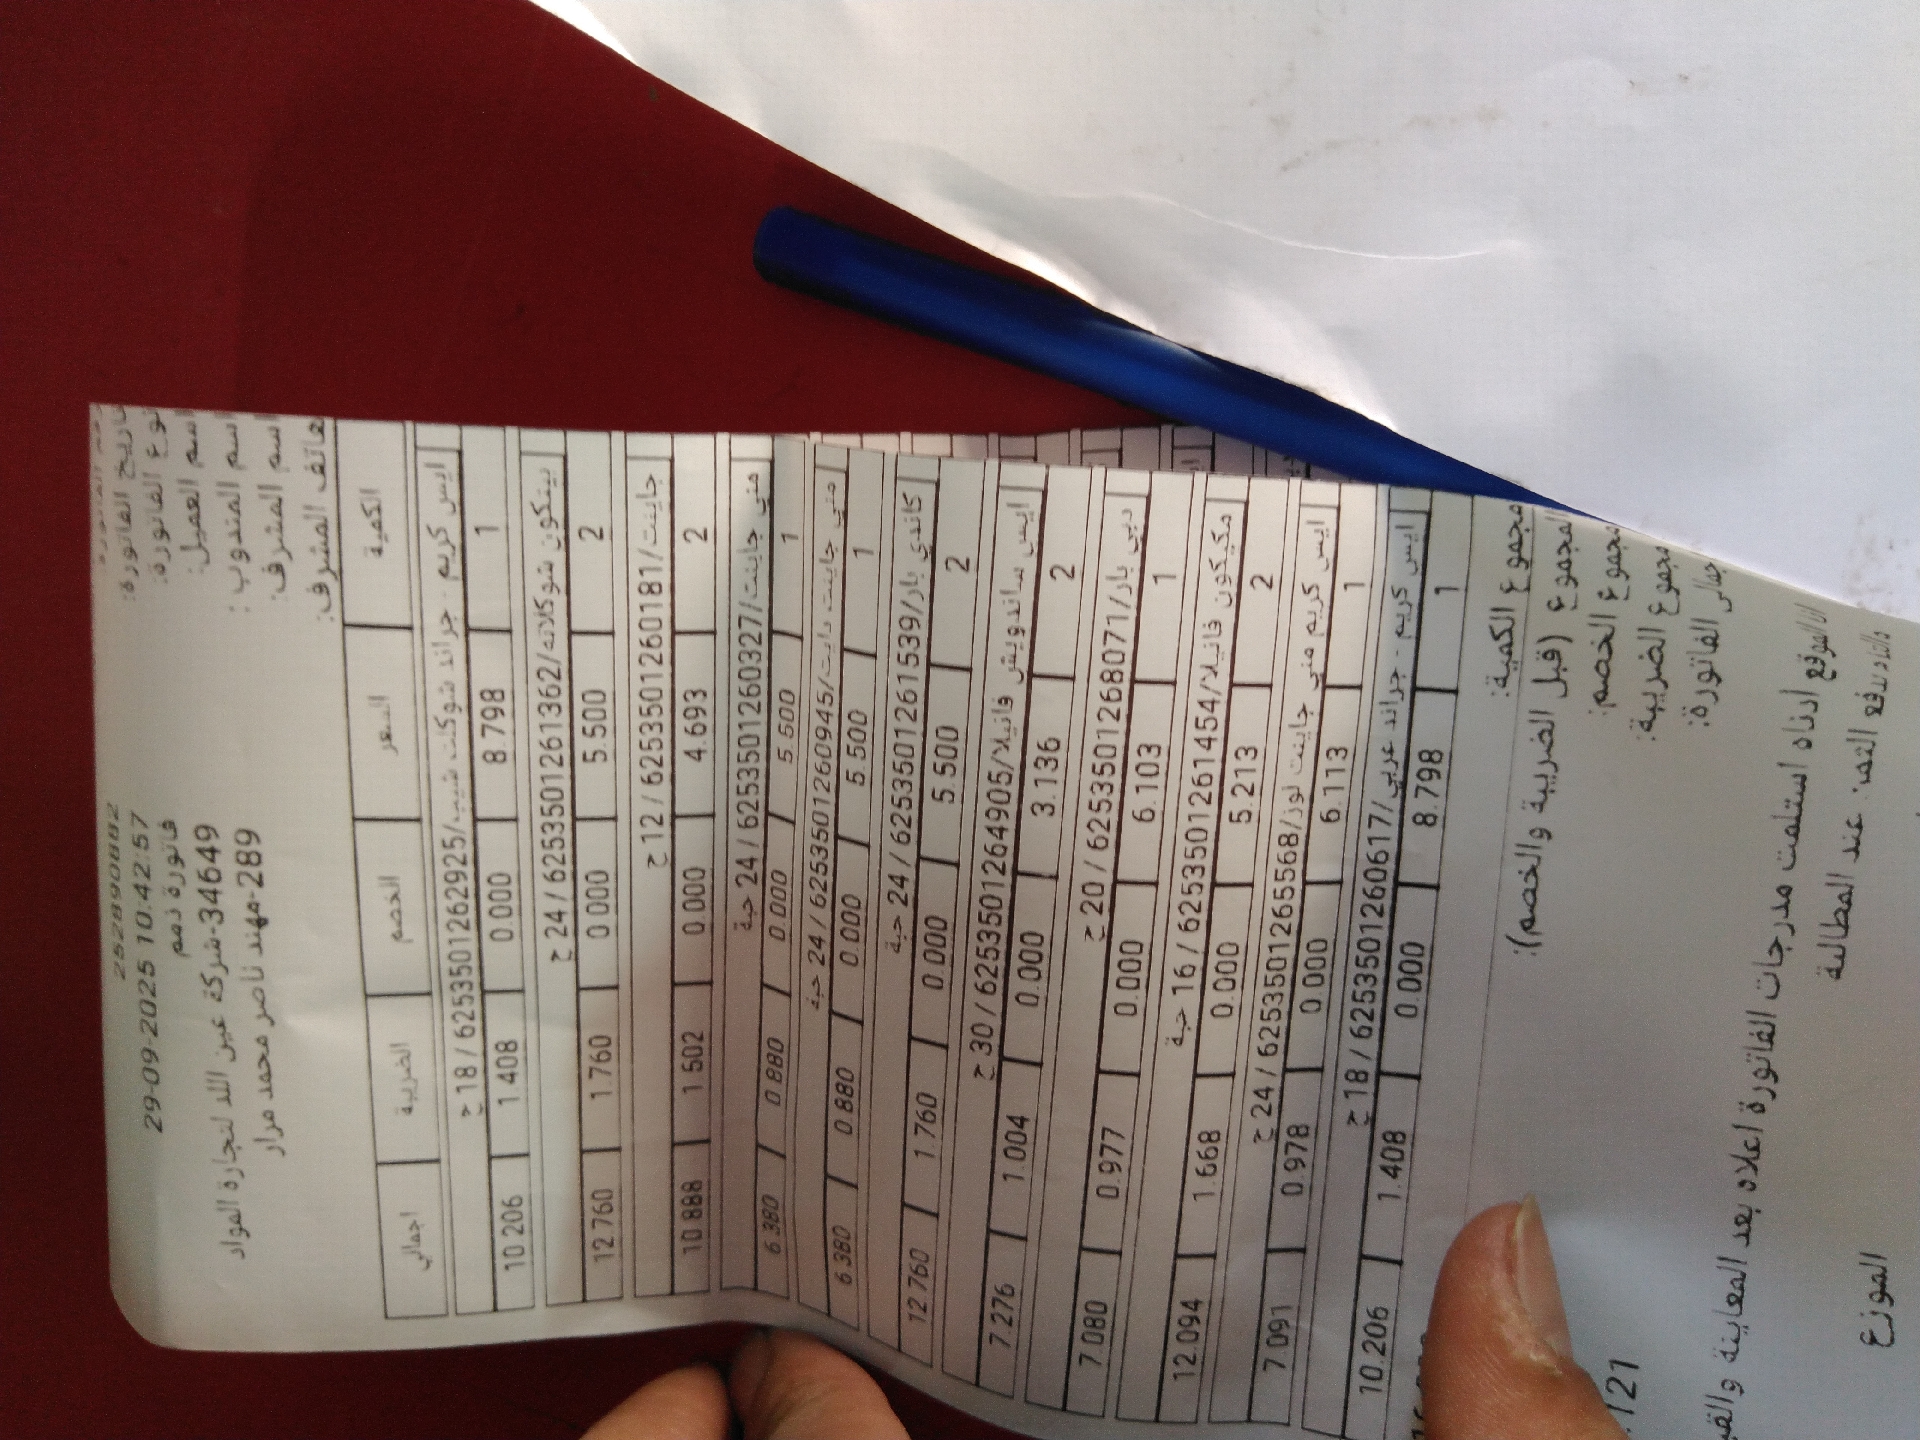 تاريخ الفاتورة: 29-09-2025 10:42:57
نوع الفاتورة: فاتورة ذمم
اسم العميل: 34649-شركة عين اللد لتجارة المواد
اسم المندوب : 289-مهند ناصر محمد مرار
اسم المشرف:
هاتف المشرف:
الكمية السعر الخصم الضريبة اجمالي
ايس كريم - جراند شوكلت شيب/6253501262925 / 18 ح
1 8.798 0.000 1.408 10.206
بيتكون شوكلاته/6253501261362 / 24 ح
2 5.500 0.000 1.760 12.760
جاينت/6253501260181 / 12 ح
2 4.693 0.000 1.502 10.888
مني جاينت/6253501260327 / 24 حبة
1 5.500 0.000 0.880 6.380
مني جاينت دايت/6253501260945 / 24 حبة
1 5.500 0.000 0.880 6.380
كاندي بار/6253501261539 / 24 حبة
2 5.500 0.000 1.760 12.760
ايس ساندويش فانيلا/6253501264905 / 30 ح
2 3.136 0.000 1.004 7.276
دبي بار/6253501268071 / 20 ح
1 6.103 0.000 0.977 7.080
ميكيكون فانيلا/6253501261454 / 16 حبة
2 5.213 0.000 1.668 12.094
ايس كريم مني جاينت لوز/6253501265568 / 24 ح
1 6.113 0.000 0.978 7.091
ايس كريم - جراند عربي/6253501260617 / 18 ح
1 8.798 0.000 1.408 10.206
مجموع الكمية:
المجموع (قبل الضريبة والخصم):
مجموع الخصم:
مجموع الضريبة:
اجمالي الفاتورة: 121
انا الموقع ادناه استلمت مدرجات الفاتورة اعلاه بعد المعاينة
عند المطالبة
الموزع